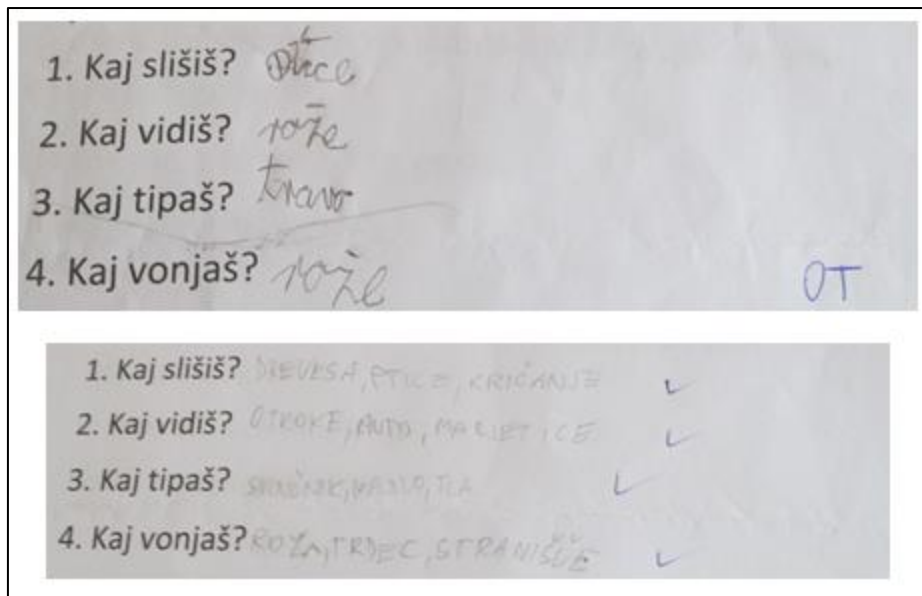 1. Kaj slišiš? ptice
2. Kaj vidiš? rože
3. Kaj tipaš? travo
4. Kaj vonjaš? rože
OT
1. Kaj slišiš? DREVESA, PTICE, KRIČANJE
2. Kaj vidiš? OTROKE, AVTO, MARJETICE
3. Kaj tipaš? TLA
4. Kaj vonjaš? ROŽA, STRANIŠČE